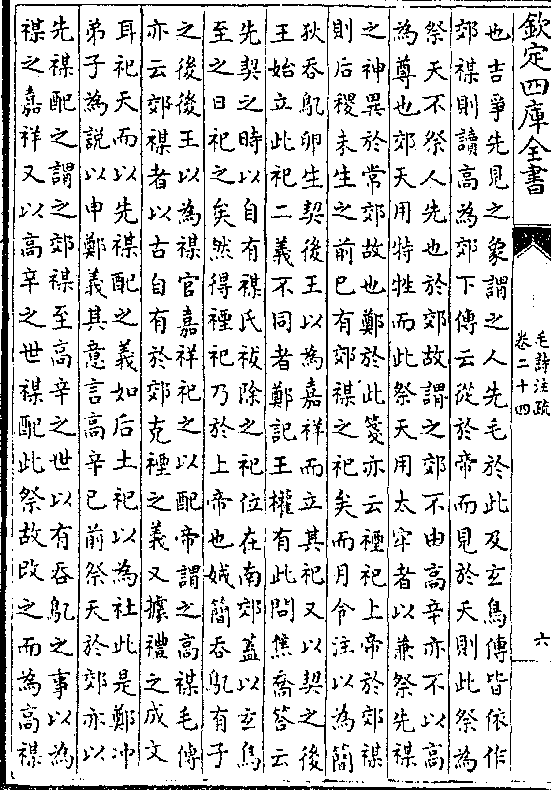 欽定四庫全書
毛詩注疏
卷二十四
六
也吉爭先見之象謂之人先毛於此及玄鳥傳皆依作
郊禖則讀高為郊下傳云從於帝而見於天則此祭為
祭天不祭人先也於郊故謂之郊不由高辛亦不以高
為尊也郊天用特牲而此祭天用太牢者以兼祭先禖
之神異於常郊故也鄭於此箋亦云禋祀上帝於郊禖
則后稷未生之前已有郊禖之祀矣而月令注以為簡
狄吞鳦卵生契後王以為嘉祥而立其祀又以契之後
王始立此祀二義不同者鄭記王權有此問焦喬荅云
先契之時以自有禖氏祓除之祀位在南郊蓋以玄鳥
至之日祀之矣然得禋祀乃於上帝也娀簡吞鳦有子
之後後王以為禖官嘉祥祀之以配帝謂之高禖毛傳
亦云郊禖者以古自有於郊克禋之義又據禮之成文
耳祀天而以先禖配之義如后土祀以為社此是鄭冲
弟子為說以申鄭義其意言高辛已前祭天於郊亦以
先禖配之謂之郊禖至高辛之世以有吞鳦之事以為
禖之嘉祥又以高辛之世禖配此祭故改之而為高禖